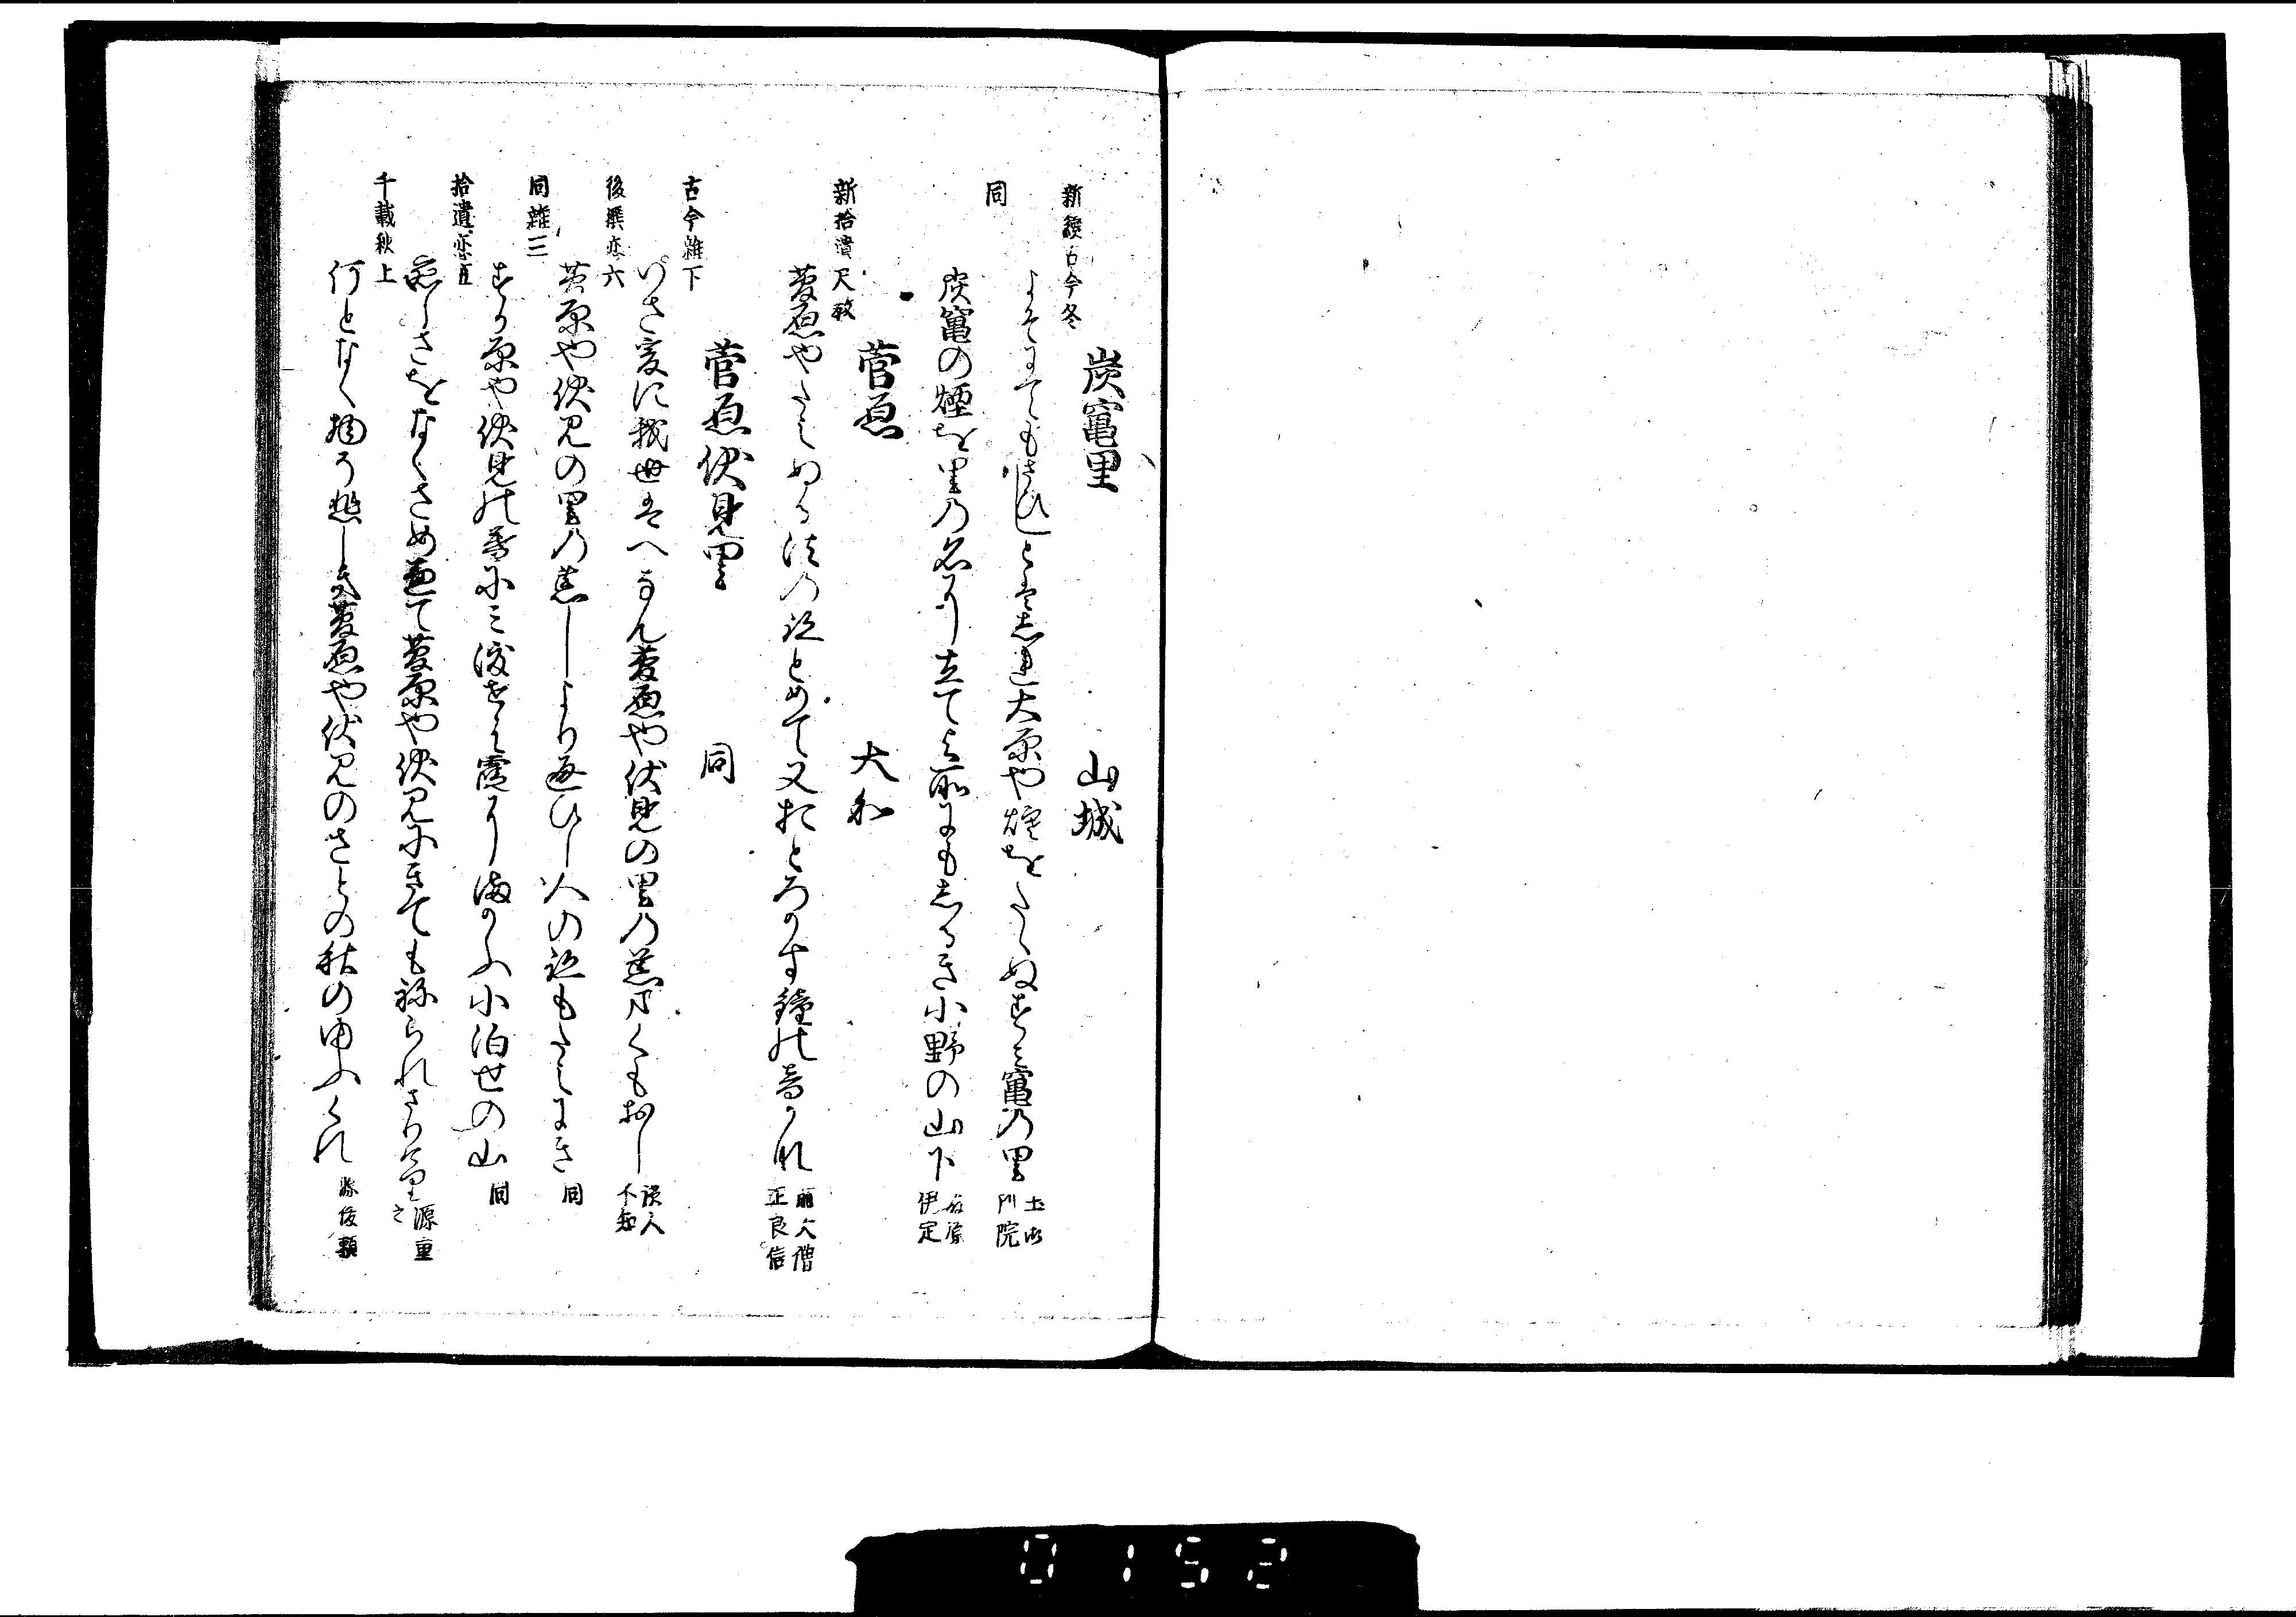 炭竈里 山城
新續古今冬
よそにてもさひしとはしれ大原や煙をたゝぬすみ竈の里 土御門院
同
炭竈の煙を里の名に立てよ所にもしるき小野の山下 伊定
菅原 大和
新拾遺尺教
菅原やたえぬる法の跡とめて又おとろかす鐘の音かな 前大僧正良信
菅原伏見里 同
古今雜下
いさ爰に我世はへなん菅原や伏見の里の荒まくもおし 讀人不知
後撰恋六
菅原や伏見の里の荒しより通ひし人の跡もたえにき 同
同雜三
すか原や伏見の暮にみ渡せは霞にまかふ小泊せの山 同
拾遺恋五
恋しさをなくさめ兼て菅原や伏見にきてもねられさりけり 源重之
千載秋上
何となく物そ悲しき菅原や伏見のさとの秋のゆふくれ 源俊頼
0152